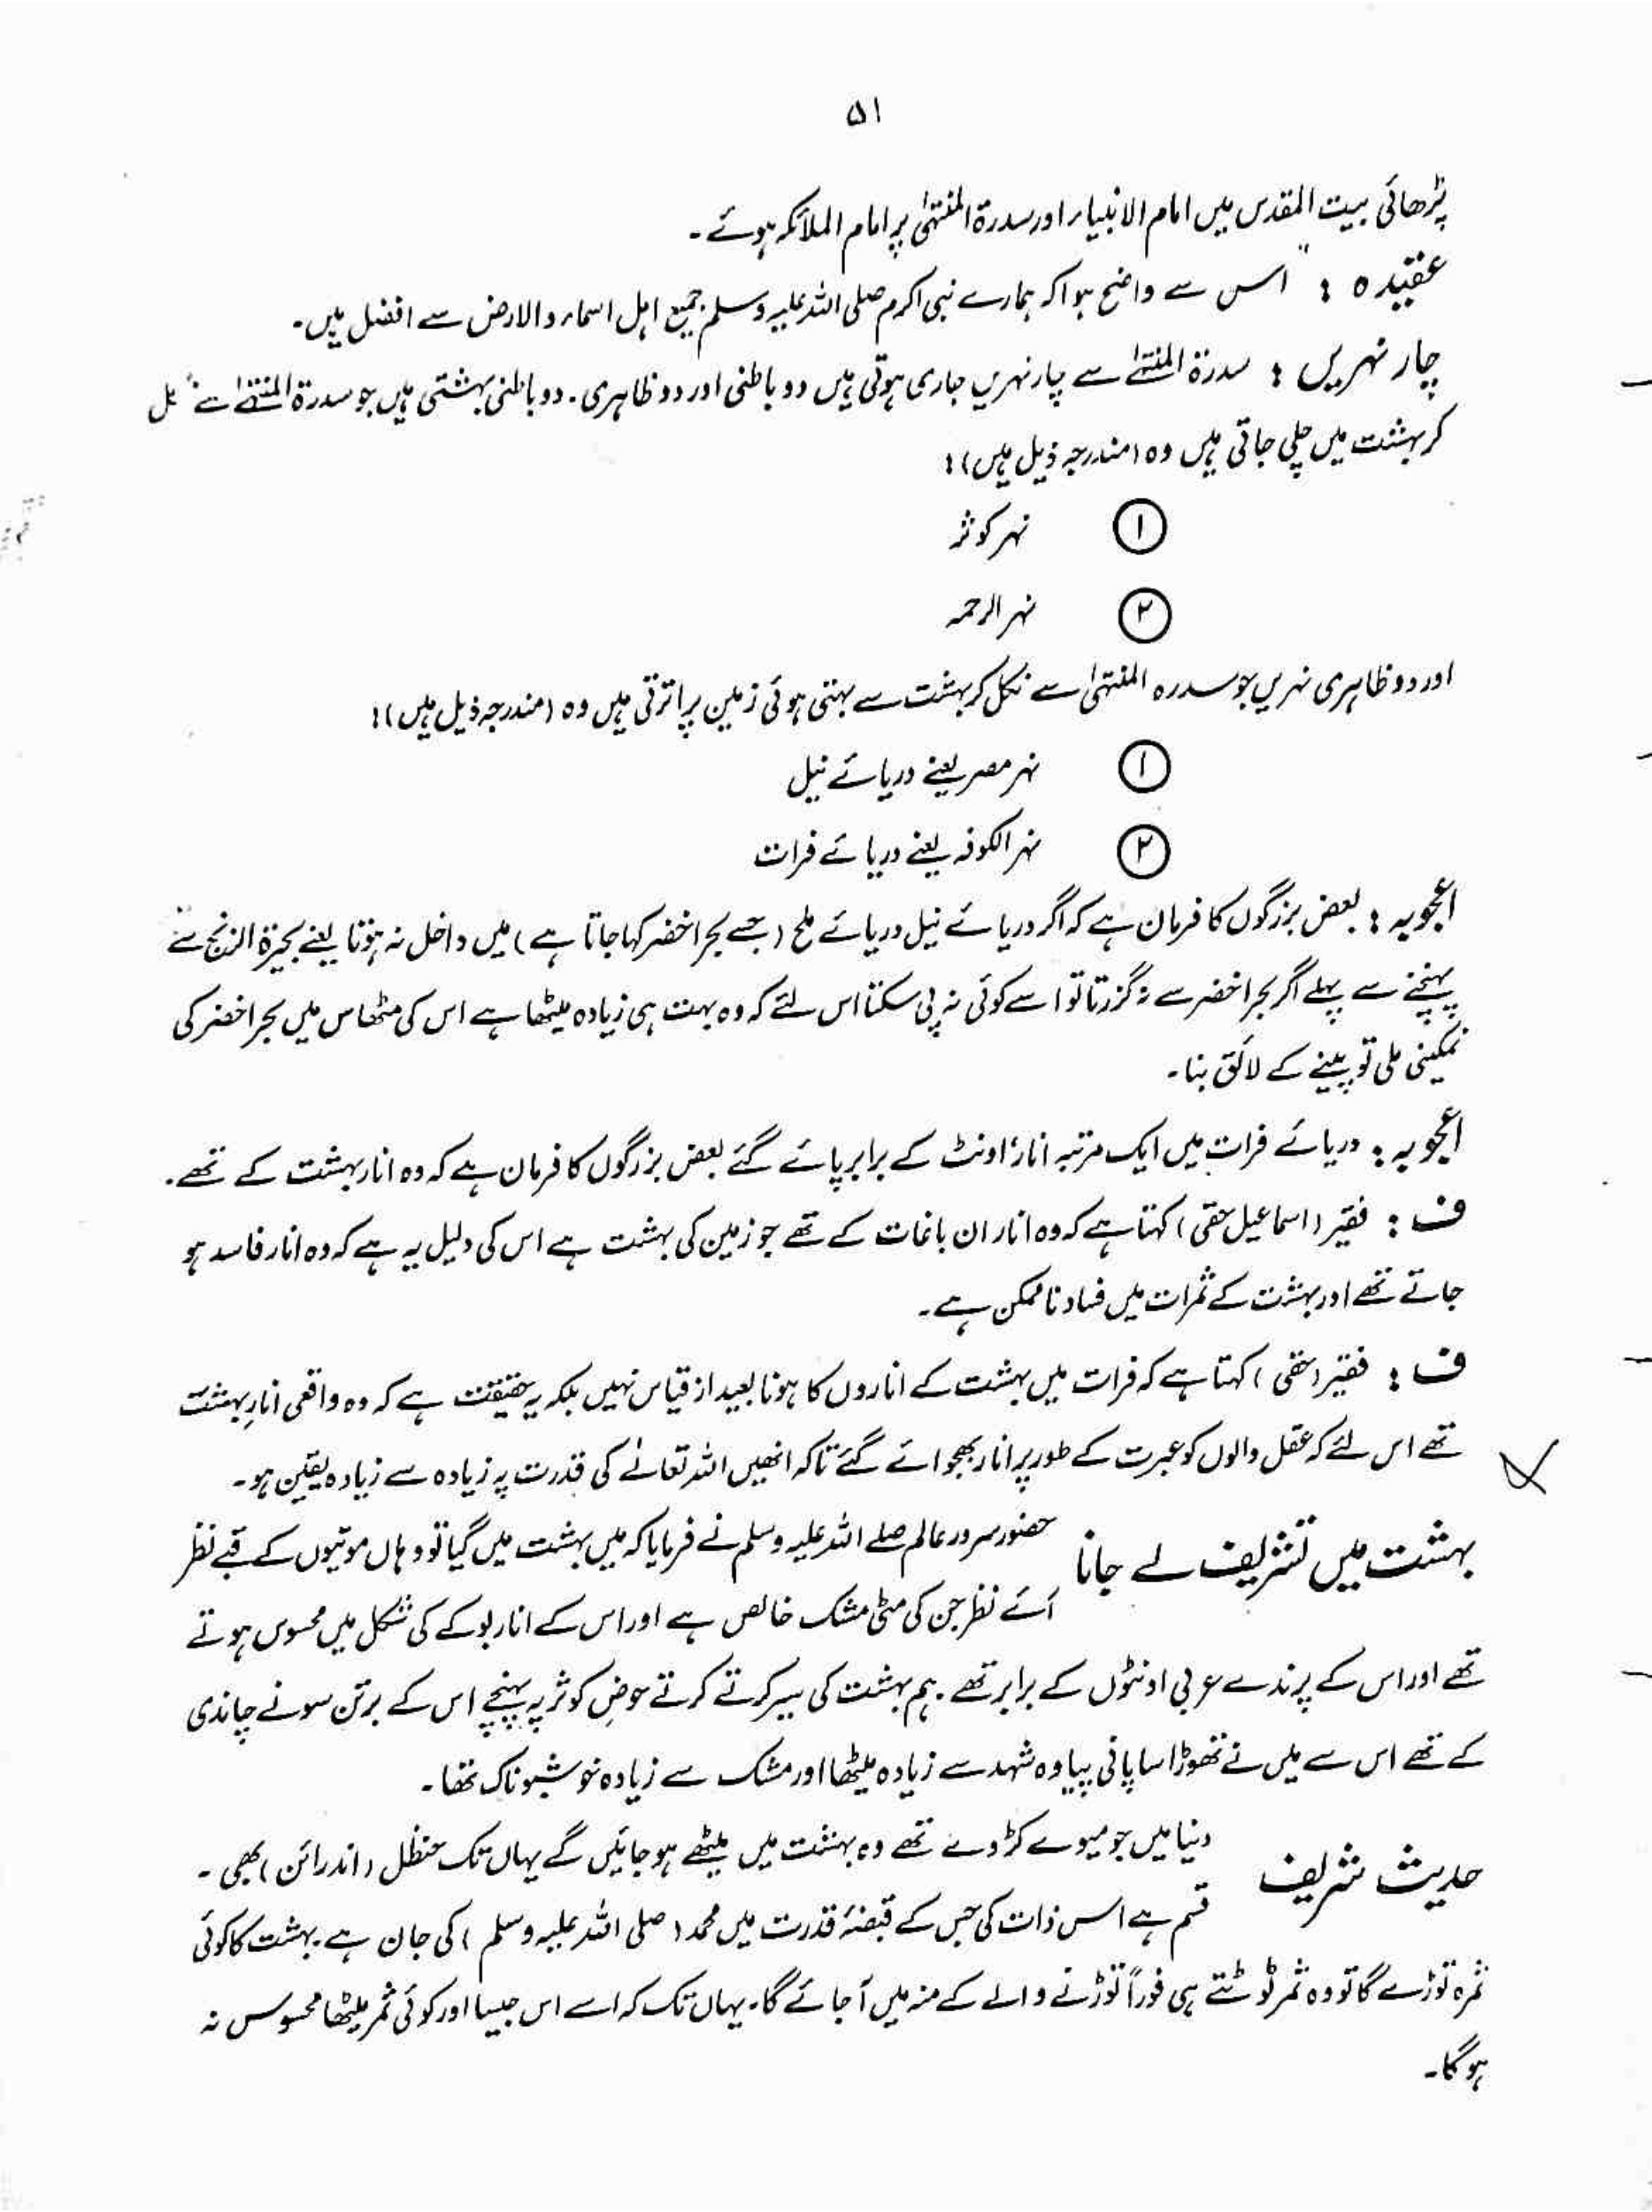 ۵۱
پڑھائی بیت المقدس میں امام الانبیاء اور سدرۃ المنتہیٰ پر امام الملائکہ ہوئے۔
عقیدہ : اس سے واضح ہوا کہ ہمارے نبی اکرم صلی اللہ علیہ وسلم جمیع اہل اسماء والارض سے افضل ہیں۔
چار نہریں : سدرۃ المنتہےٰ سے چار نہریں جاری ہوتی ہیں دو باطنی اور دو ظاہری۔ دو باطنی بہشتی ہیں جو سدرۃ المنتہےٰ سے نکل
کر بہشت میں چلی جاتی ہیں وہ (مندرجہ ذیل ہیں):
۱ نہر کوثر
۲ نہر الرحمہ
اور دو ظاہری نہریں جو سدرہ المنتہیٰ سے نکل کر بہشت سے بہتی ہوئی زمین پر اترتی ہیں وہ (مندرجہ ذیل ہیں):
۱ نہر مصر یعنے دریائے نیل
۲ نہر الکوفہ یعنے دریائے فرات
اعجوبہ : بعض بزرگوں کا فرمان ہے کہ اگر دریائے نیل دریائے ملح (جسے بحر اخضر کہا جاتا ہے) میں داخل نہ ہوتا یعنے بحیرۃ الزنج سے
پہنچنے سے پہلے اگر بحر اخضر سے نہ گزرتا تو اسے کوئی نہ پی سکتا اس لئے کہ وہ بہت ہی زیادہ میٹھا ہے اس کی مٹھاس میں بحر اخضر کی
نمکینی ملی تو پینے کے لائق بنا۔
اعجوبہ : دریائے فرات میں ایک مرتبہ انار اونٹ کے برابر پائے گئے بعض بزرگوں کا فرمان ہے کہ وہ انار بہشت کے تھے۔
ف : فقیر (اسماعیل حقی) کہتا ہے کہ وہ انار ان باغات کے تھے جو زمین کی بہشت ہے اس کی دلیل یہ ہے کہ وہ انار فاسد ہو
جاتے تھے اور بہشت کے ثمرات میں فساد ناممکن ہے۔
ف : فقیر (حقی) کہتا ہے کہ فرات میں بہشت کے اناروں کا ہونا بعید از قیاس نہیں بلکہ یہ حقیقت ہے کہ وہ واقعی انارِ بہشت
تھے اس لئے کہ عقل والوں کو عبرت کے طور پر انار بھجوائے گئے تاکہ انھیں اللہ تعالےٰ کی قدرت پہ زیادہ سے زیادہ یقین ہو۔
بہشت میں تشریف لے جانا حضور سرور عالم صلے اللہ علیہ وسلم نے فرمایا کہ میں بہشت میں گیا تو وہاں موتیوں کے قبے نظر
آئے نظر جن کی مٹی مشک خالص ہے اور اس کے انار بوکے کی شکل میں محسوس ہوتے
تھے اور اس کے پرندے عربی اونٹوں کے برابر تھے۔ ہم بہشت کی سیر کرتے کرتے حوضِ کوثر پہ پہنچے اس کے برتن سونے چاندی
کے تھے اس سے میں نے تھوڑا سا پانی پیا وہ شہد سے زیادہ میٹھا اور مشک سے زیادہ خوشبوناک تھا۔
حدیث شریف دنیا میں جو میوے کڑوے تھے وہ بہشت میں میٹھے ہو جائیں گے یہاں تک حنظل (اندرائن) بھی۔
قسم ہے اس ذات کی جس کے قبضۂ قدرت میں محمد (صلی اللہ علیہ وسلم) کی جان ہے۔ بہشت کا کوئی
ثمرہ توڑے گا تو وہ ثمر ٹوٹتے ہی فوراً توڑنے والے کے منہ میں آ جائے گا۔ یہاں تک کہ اسے اس جیسا اور کوئی ثمر میٹھا محسوس نہ
ہو گا۔